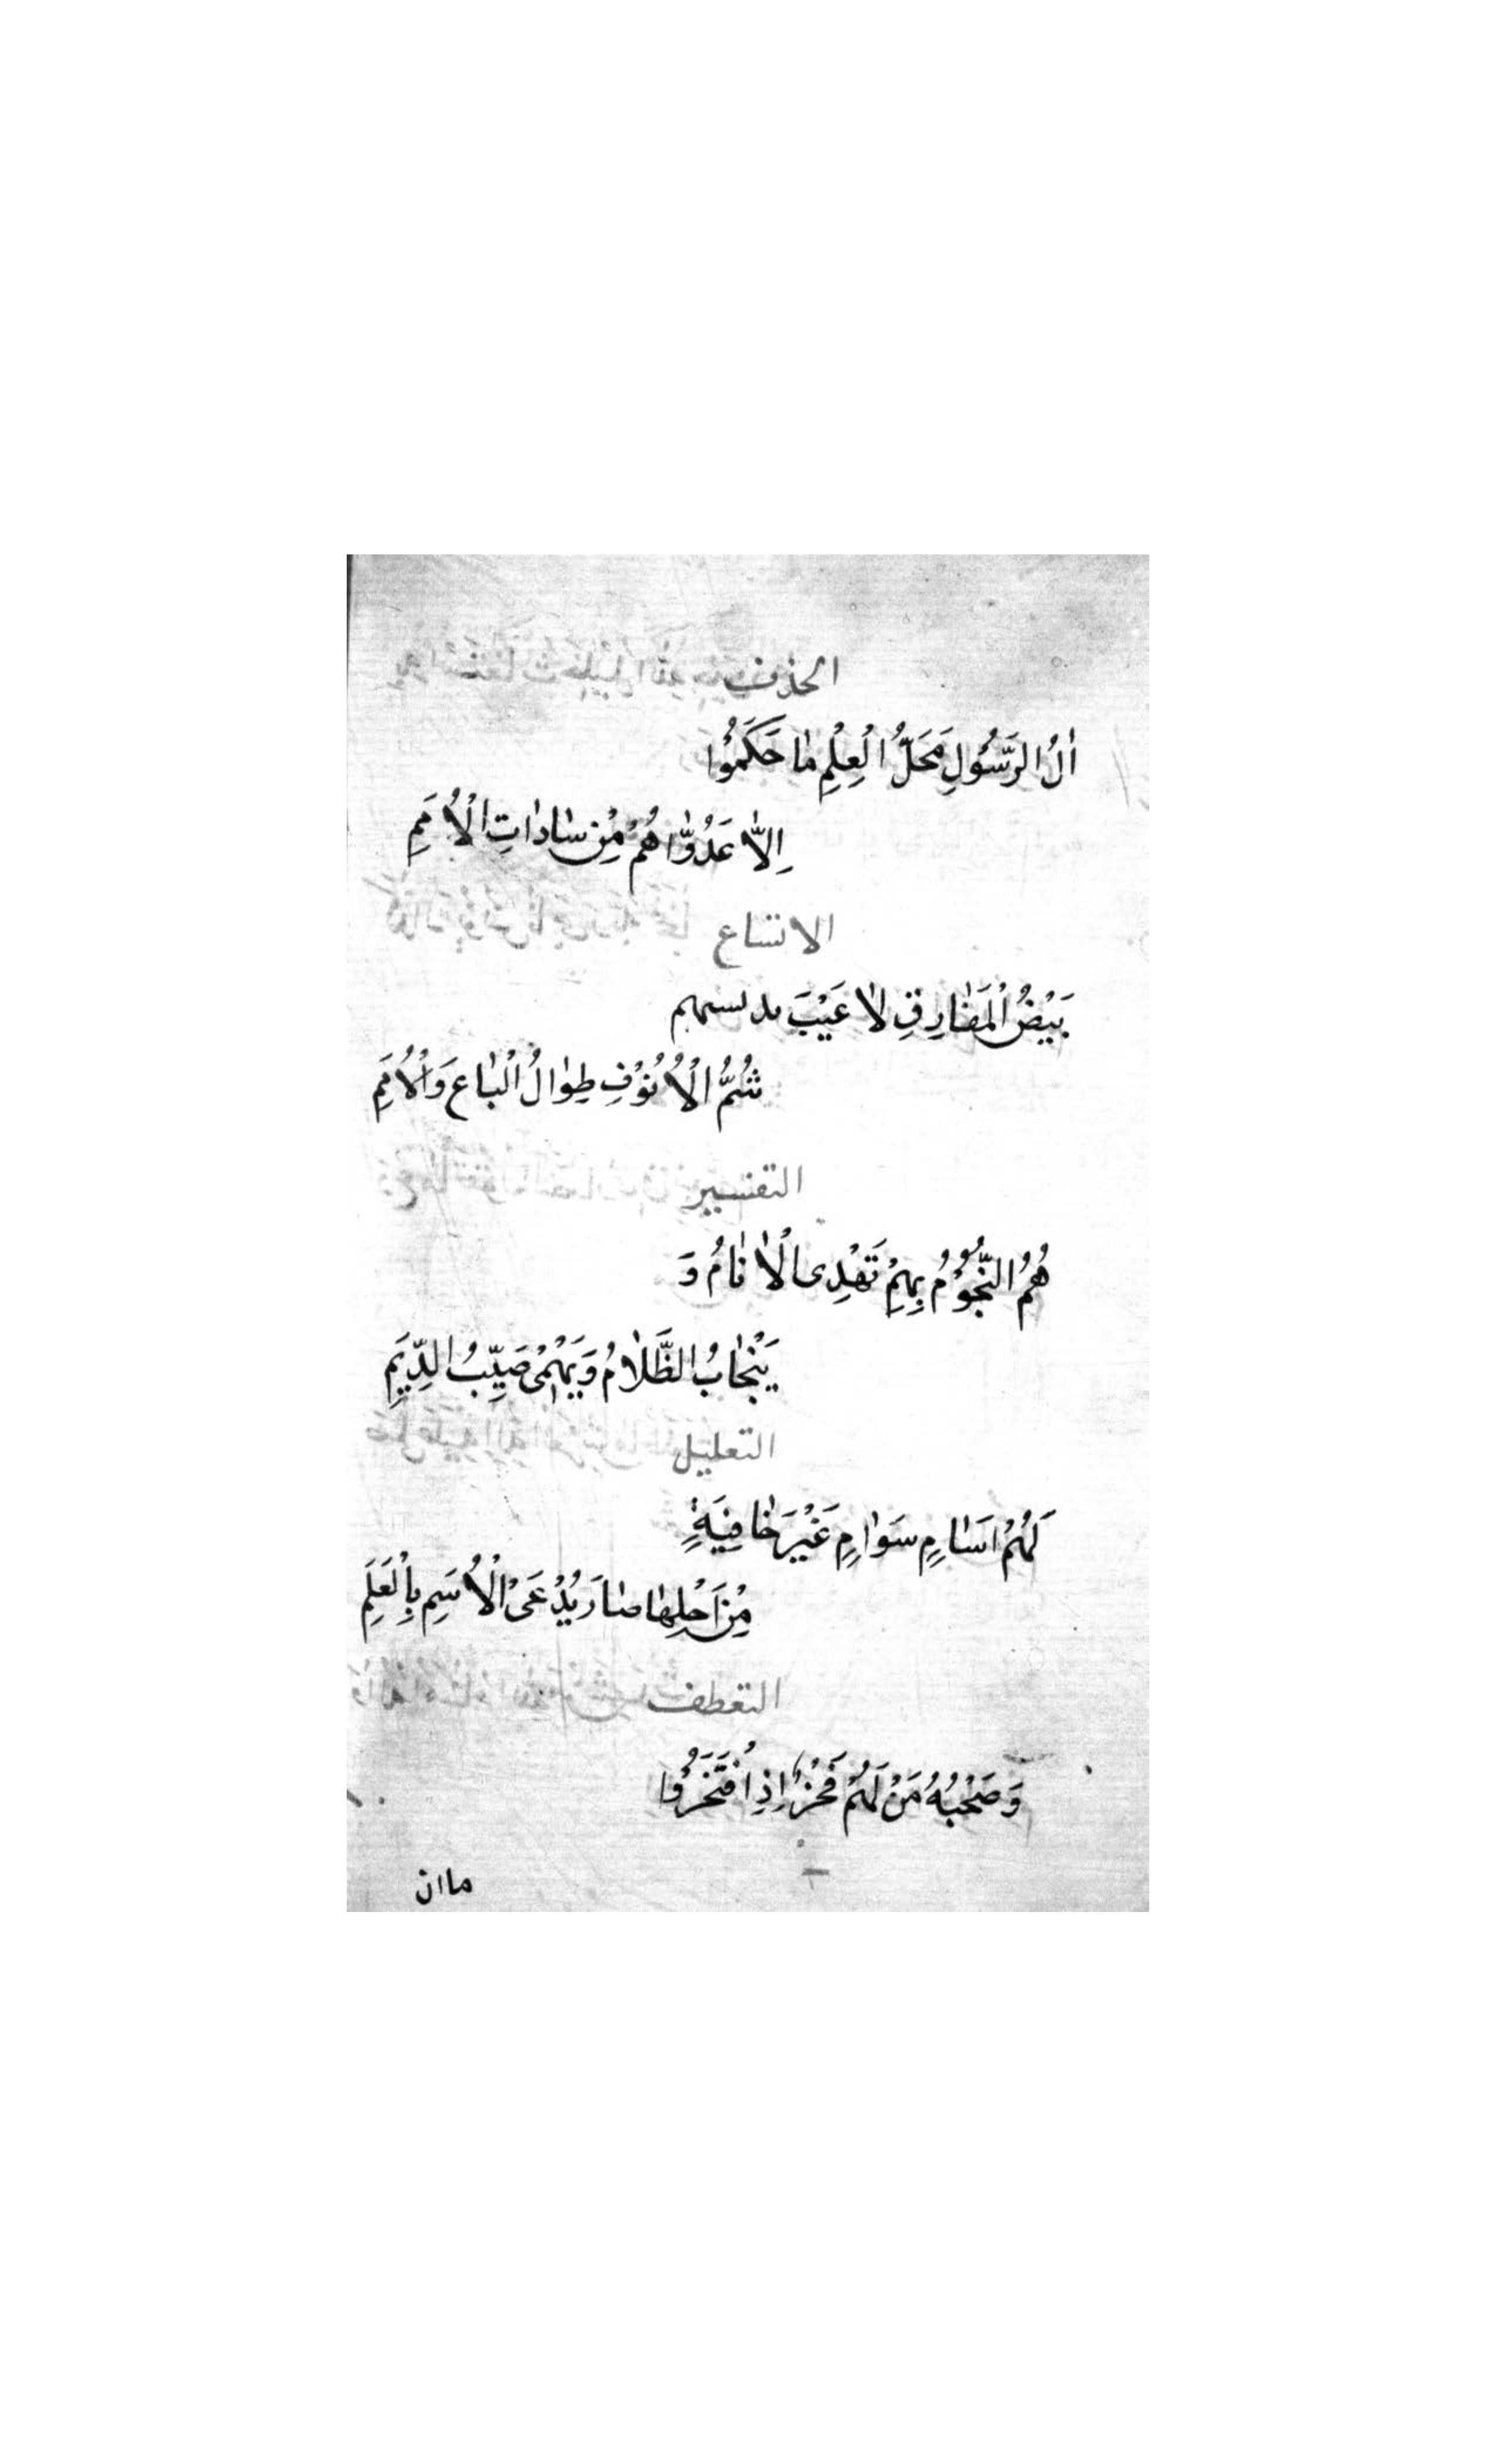 الحذف
اٰلُ الرَّسُولِ مَحَلُّ الْعِلْمِ مٰا حَكَمُوْا
اِلاّٰ عَدُوّٰا هُمْ مِنْ سٰادٰاتِ الْاُمَمِ
الاتساع
بَيْضُ الْمَفٰارِقِ لاٰ عَيْبَ
شُمُّ الْاُنُوْفِ طِوٰالُ الْبٰاعِ وَالْاُمَمِ
التفسير
هُمُ النُّجُوْمُ بِهِمْ تَهْدِى الْاَنٰامُ وَ
يَنْجٰابُ الظَّلاٰمُ وَيَهْمِىْ صَيِّبُ الدِّيَمِ
التعليل
لَهُمْ اَسٰامٍ سَوٰامٍ غَيْرَ خٰافِيَةٍ
مِنْ اَجْلِهٰا صٰارَ يُدْعَىْ الْاُسَمِ بِالْعَلَمِ
التعطف
وَصَحْبُهُ مَنْ لَهُمْ فَخْرٌ اِذِ اُفْتَخَرُوْا
ماان